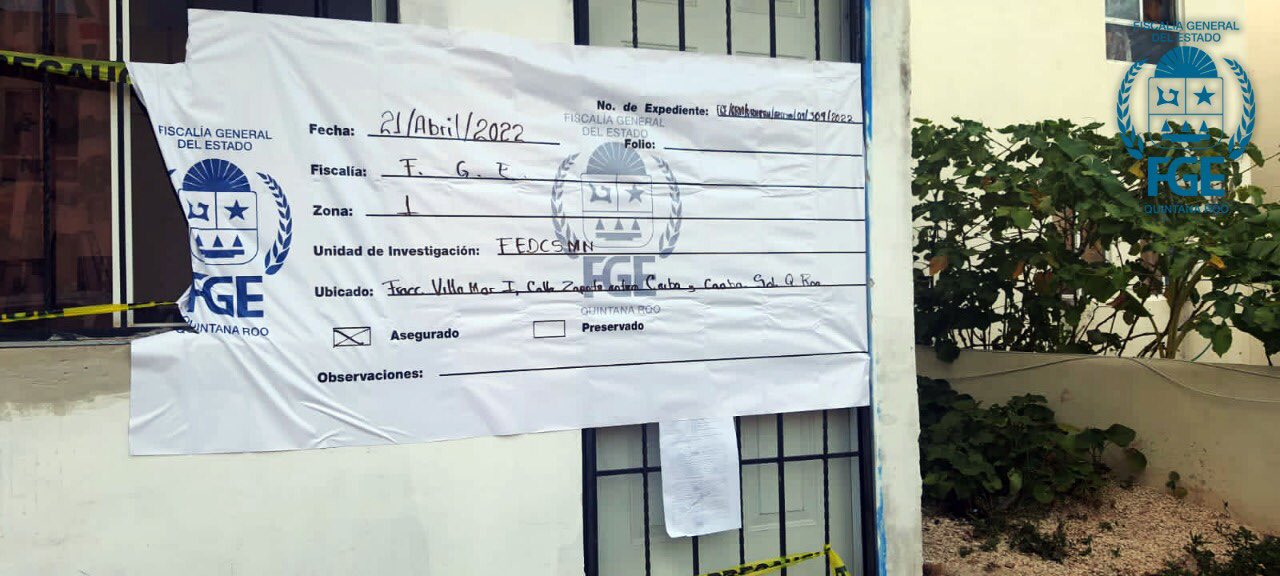 FISCALÍA GENERAL
DEL ESTADO
FGE
QUINTANA ROO
No. de Expediente: /309/2022
Fecha: 21/Abril/2022
Folio:
Fiscalía: F. G. E.
Zona: 1
Unidad de Investigación: FEDCSMN
Ubicado: Fracc. Villa Mar I, Calle Zapote entre Ceiba y Caoba Sol. Q Roo
Asegurado
Preservado
Observaciones:
FISCALÍA GENERAL
DEL ESTADO
FGE
QUINTANA ROO
FISCALÍA GENERAL
DEL ESTADO
FGE
QUINTANA ROO